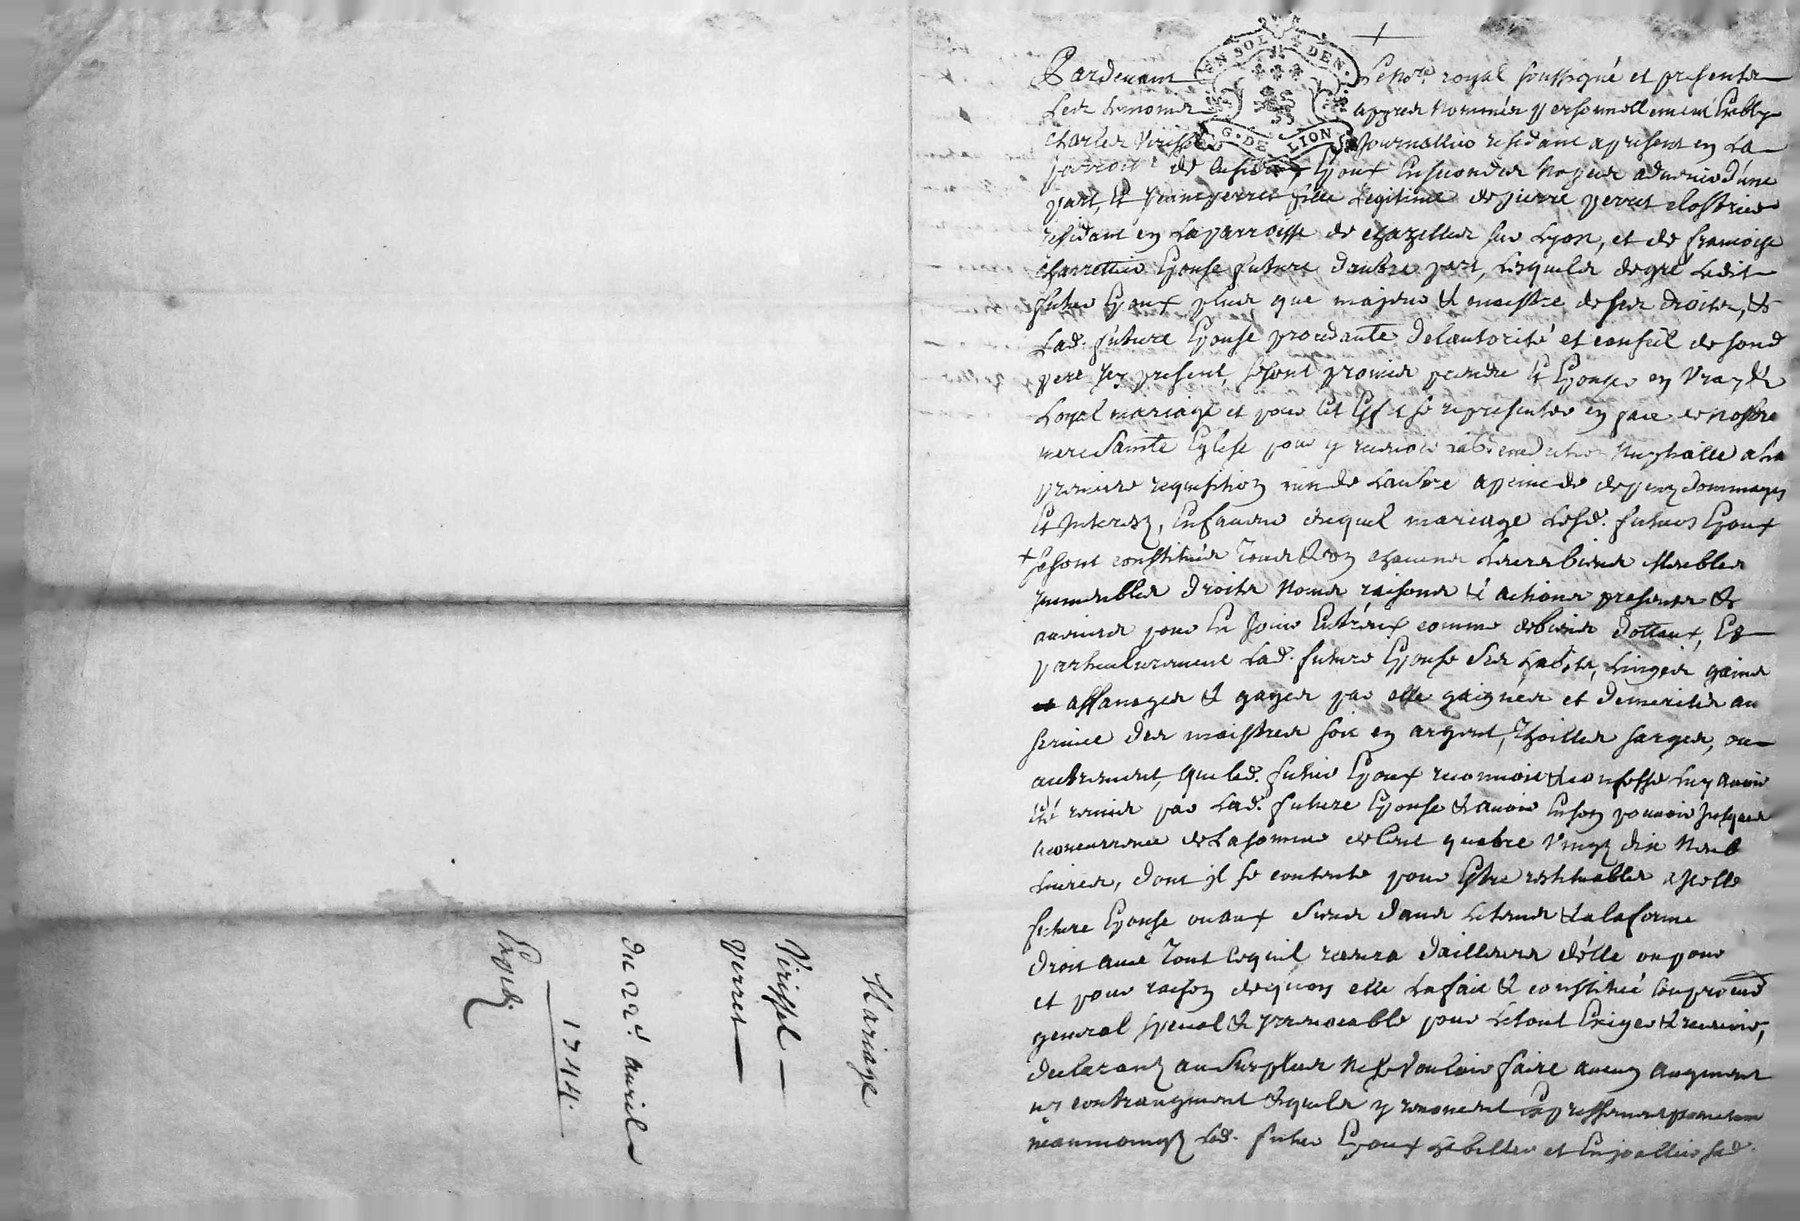 Mariage
Virissel
perret
du 22e auriel
1744.
Expedié
GEN SOL DEN.
G. DE LION
Pardeuant Le nore royal soussigné et presents
Les tesmoins appres nommés personnellement Estably
charles Viriss Journallier residant apresent en La
parroisse de Epoux En secondes Nopces aduenir d'une
part, Et perret fille Legitime de pierre perret
residant en La parroisse de chazelles sur Lyon, et de francoise
charretier Epouse future d'autre part, Lesquels de gré Ledit
futur Epoux plus que majeur & maistre de ses droits, &
Lad. future Epouse procedante de lautorité et conseil de sond
pere Icy present, se sont promis prendre Et Epouser en Vray &
Loyal mariage et pour Cet Effet se representer en face de nostre
mere Sainte Eglise pour y receuoir la benediction Nuptialle a la
premiere requisition L'un de L'autre a peine de depens dommages
Et Interests, En faueur duquel mariage Lesd. futurs Epoux
+ se sont constitués tous & un chacuns Leurs biens Meubles
Immeubles droits Noms raisons & actions presents &
auenirs pour En Jouir Entr'eux comme de biens dottaux, Et
particulierement Lad. future Epouse Ses habits, Linges gains
affanages & gages par elle gaignés et demerités au
seruice des maistres soit en argent, thoilles sarges, ou
autrement, que led. futur Epoux reconnoit & confesse Luy auoir
Eté remis par Lad. future Epouse & auoir En son pouuoir Jusques
a concurrance de La somme de Cent quatre Vingt dix Neuf
Liures, dont il se contente pour Estre restituables a Icelle
future Epouse ou aux Siens dans Le temps & a la forme
droit auec tout ce qu'il receura d'ailleurs d'elle ou pour
et pour raison de quoy elle La fait & constitué son procur
general special & Irreuocable pour Le tout Exiger & receuoir,
declarant au Surplus Ne Vouloir faire aucun augment
ny contraugment & quils y renoncent Expressement
neanmoings Led. futur Epoux habiller et Enjoallier sad.